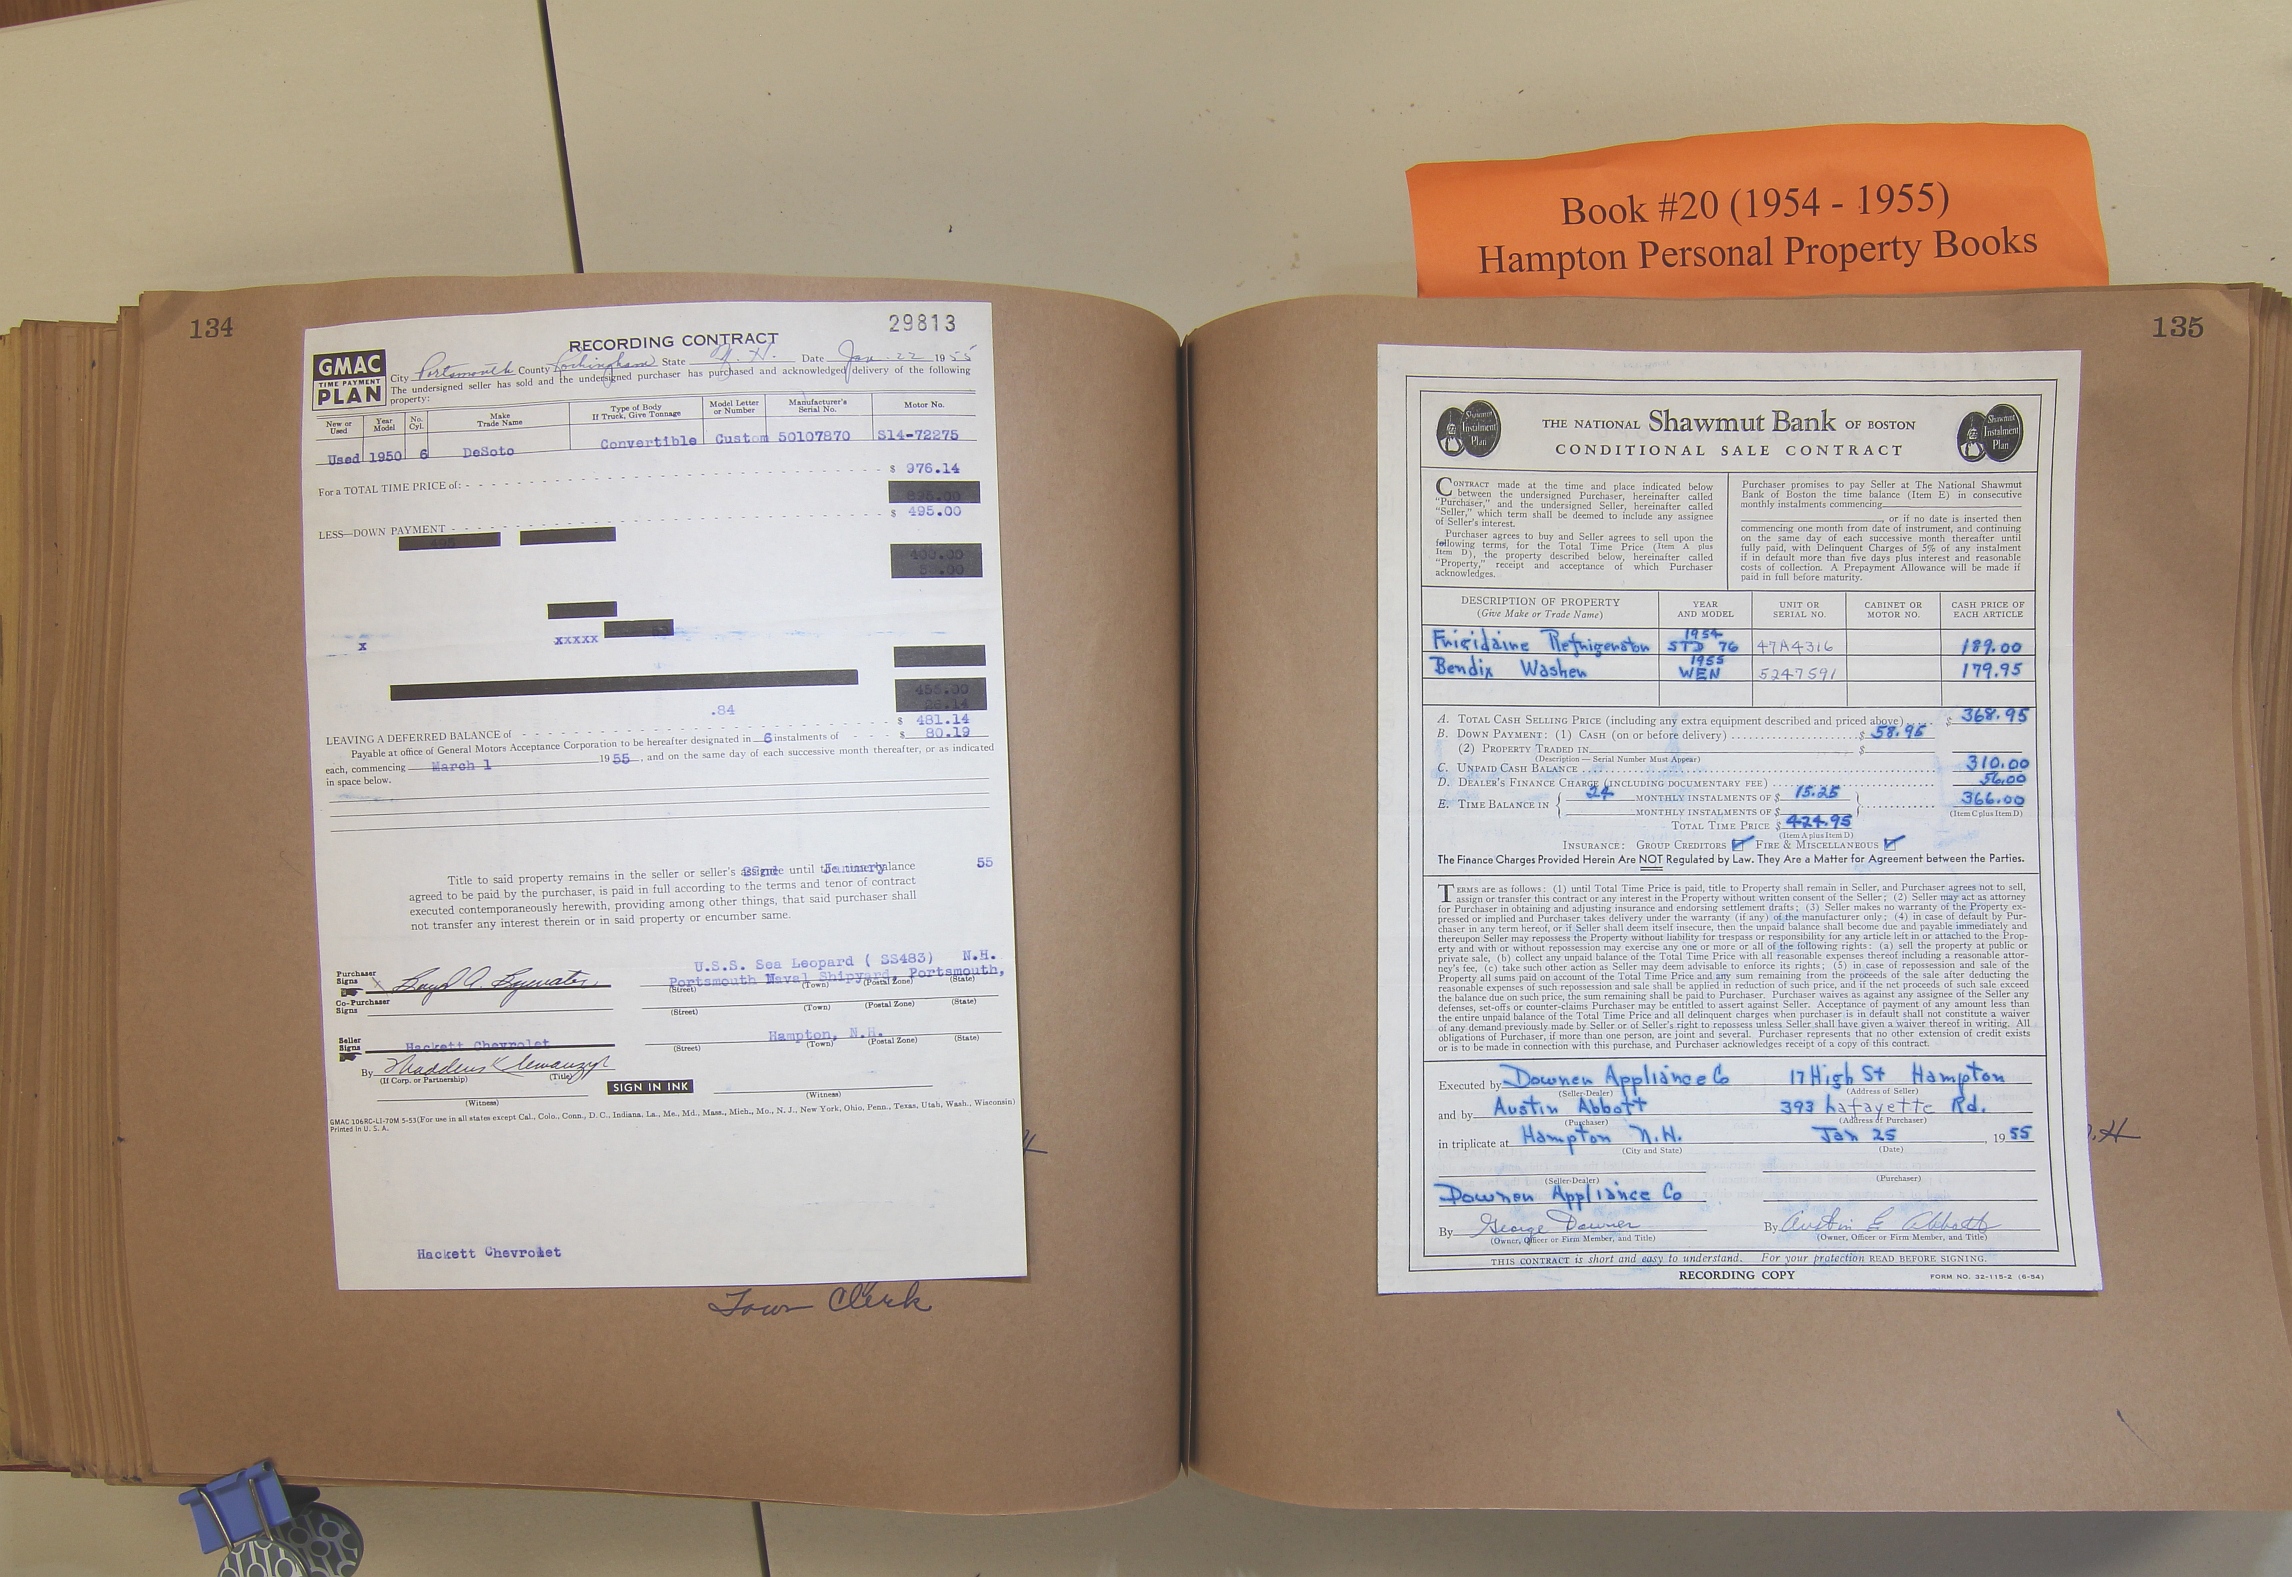 Book #20 (1954 - 1955)
Hampton Personal Property Books
134
29813
RECORDING CONTRACT
GMAC
TIME PAYMENT
PLAN
City Portsmouth County Rockingham State N. H. Date Jan. 22 1955
The undersigned seller has sold and the undersigned purchaser has purchased and acknowledged delivery of the following
property:
New or Used Year Model No. Cyl. Make Trade Name Type of Body If Truck, Give Tonnage Model Letter or Number Manufacturer's Serial No. Motor No.
Used 1950 6 DeSoto Convertible Custom 50107870 S14-72275
For a TOTAL TIME PRICE of: $ 976.14
895.00
LESS—DOWN PAYMENT $ 495.00
495
400.00
x xxxxx
455.00
26.14
.84
LEAVING A DEFERRED BALANCE of $ 481.14
Payable at office of General Motors Acceptance Corporation to be hereafter designated in 6 instalments of $ 80.19
each, commencing March 1 1955, and on the same day of each successive month thereafter, or as indicated
in space below.
Title to said property remains in the seller or seller's assignee until the time balance 55
agreed to be paid by the purchaser, is paid in full according to the terms and tenor of contract
executed contemporaneously herewith, providing among other things, that said purchaser shall
not transfer any interest therein or in said property or encumber same.
U.S.S. Sea Leopard ( SS483) N.H.
Purchaser Signs X Boyd A. Bywater Portsmouth Naval Shipyard, Portsmouth,
(Street) (Town) (Postal Zone) (State)
Co-Purchaser Signs
(Street) (Town) (Postal Zone) (State)
Seller Signs Hackett Chevrolet Hampton, N.H.
(Street) (Town) (Postal Zone) (State)
By
(If Corp. or Partnership) (Title)
SIGN IN INK
(Witness) (Witness)
GMAC 106RC-L1-70M 5-53 (For use in all states except Cal., Colo., Conn., D. C., Indiana, La., Me., Md., Mass., Mich., Mo., N. J., New York, Ohio, Penn., Texas, Utah, Wash., Wisconsin)
Printed in U. S. A.
Hackett Chevrolet
Town Clerk
135
Shawmut Instalment Plan
THE NATIONAL Shawmut Bank OF BOSTON
CONDITIONAL SALE CONTRACT
Shawmut Instalment Plan
CONTRACT made at the time and place indicated below
between the undersigned Purchaser, hereinafter called
"Purchaser," and the undersigned Seller, hereinafter called
"Seller," which term shall be deemed to include any assignee
of Seller's interest.
Purchaser agrees to buy and Seller agrees to sell upon the
following terms, for the Total Time Price (Item A plus
Item D), the property described below, hereinafter called
"Property," receipt and acceptance of which Purchaser
acknowledges.
Purchaser promises to pay Seller at The National Shawmut
Bank of Boston the time balance (Item E) in consecutive
monthly instalments commencing
, or if no date is inserted then
commencing one month from date of instrument, and continuing
on the same day of each successive month thereafter until
fully paid, with Delinquent Charges of 5% of any instalment
if in default more than five days plus interest and reasonable
costs of collection. A Prepayment Allowance will be made if
paid in full before maturity.
DESCRIPTION OF PROPERTY (Give Make or Trade Name) YEAR AND MODEL UNIT OR SERIAL NO. CABINET OR MOTOR NO. CASH PRICE OF EACH ARTICLE
Frigidaire Refrigerator 1954 STD 76 47A4316 189.00
Bendix Washer 1955 WEN 5247591 179.95
A. TOTAL CASH SELLING PRICE (including any extra equipment described and priced above) $ 368.95
B. DOWN PAYMENT: (1) CASH (on or before delivery) $ 58.95
(2) PROPERTY TRADED IN $
(Description — Serial Number Must Appear)
C. UNPAID CASH BALANCE 310.00
D. DEALER'S FINANCE CHARGE (INCLUDING DOCUMENTARY FEE) 56.00
E. TIME BALANCE IN { 24 MONTHLY INSTALMENTS OF $ 15.25 } 366.00
MONTHLY INSTALMENTS OF $ (Item C plus Item D)
TOTAL TIME PRICE $ 424.95
(Item A plus Item D)
INSURANCE: GROUP CREDITORS ✓ FIRE & MISCELLANEOUS ✓
The Finance Charges Provided Herein Are NOT Regulated by Law. They Are a Matter for Agreement between the Parties.
TERMS are as follows: (1) until Total Time Price is paid, title to Property shall remain in Seller, and Purchaser agrees not to sell,
assign or transfer this contract or any interest in the Property without written consent of the Seller; (2) Seller may act as attorney
for Purchaser in obtaining and adjusting insurance and endorsing settlement drafts; (3) Seller makes no warranty of the Property ex-
pressed or implied and Purchaser takes delivery under the warranty (if any) of the manufacturer only; (4) in case of default by Pur-
chaser in any term hereof, or if Seller shall deem itself insecure, then the unpaid balance shall become due and payable immediately and
thereupon Seller may repossess the Property without liability for trespass or responsibility for any article left in or attached to the Prop-
erty and with or without repossession may exercise any one or more or all of the following rights: (a) sell the property at public or
private sale, (b) collect any unpaid balance of the Total Time Price with all reasonable expenses thereof including a reasonable attor-
ney's fee, (c) take such other action as Seller may deem advisable to enforce its rights; (5) in case of repossession and sale of the
Property all sums paid on account of the Total Time Price and any sum remaining from the proceeds of the sale after deducting the
reasonable expenses of such repossession and sale shall be applied in reduction of such price, and if the net proceeds of such sale exceed
the balance due on such price, the sum remaining shall be paid to Purchaser. Purchaser waives as against any assignee of the Seller any
defenses, set-offs or counter-claims Purchaser may be entitled to assert against Seller. Acceptance of payment of any amount less than
the entire unpaid balance of the Total Time Price and all delinquent charges when purchaser is in default shall not constitute a waiver
of any demand previously made by Seller or of Seller's right to repossess unless Seller shall have given a waiver thereof in writing. All
obligations of Purchaser, if more than one person, are joint and several. Purchaser represents that no other extension of credit exists
or is to be made in connection with this purchase, and Purchaser acknowledges receipt of a copy of this contract.
Executed by Downer Appliance Co 17 High St Hampton
(Seller-Dealer) (Address of Seller)
and by Austin Abbott 393 Lafayette Rd.
(Purchaser) (Address of Purchaser)
in triplicate at Hampton N.H. Jan 25, 1955
(City and State) (Date)
(Seller-Dealer) (Purchaser)
Downer Appliance Co
By George Downer By Austin E Abbott
(Owner, Officer or Firm Member, and Title) (Owner, Officer or Firm Member, and Title)
THIS CONTRACT is short and easy to understand. For your protection READ BEFORE SIGNING.
RECORDING COPY FORM NO. 32-115-2 (6-54)